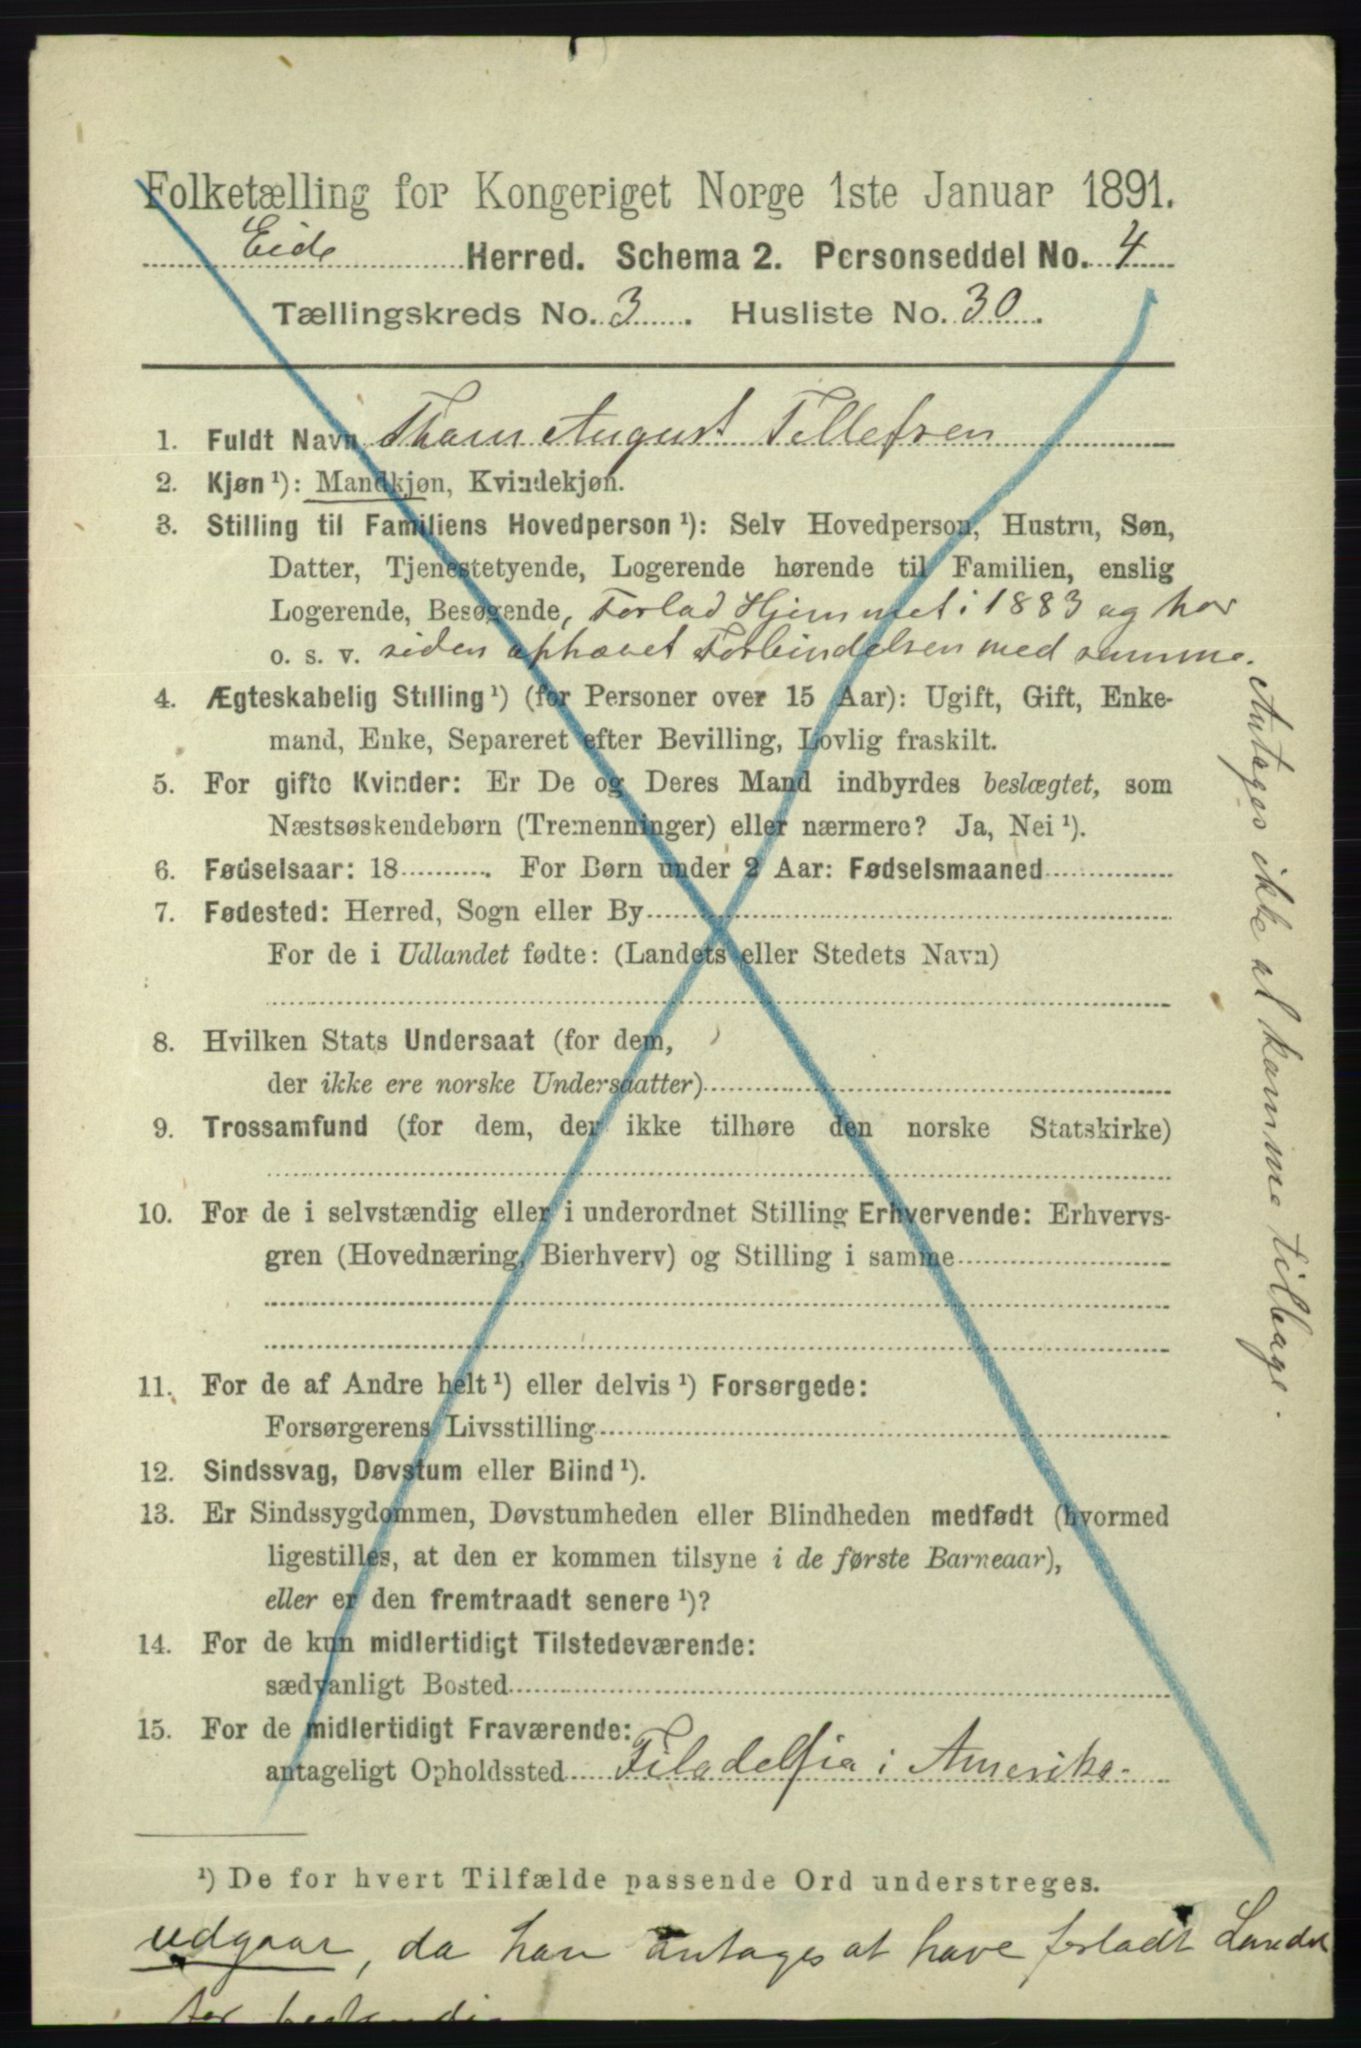 Folketælling for Kongeriget Norge 1ste Januar 1891.
Eide Herred. Schema 2. Personseddel No. 4
Tællingskreds No. 3. Husliste No. 30.
1. Fuldt Navn August Tellefsen
2. Kjøn ¹): Mandkjøn, Kvindekjøn.
3. Stilling til Familiens Hovedperson ¹): Selv Hovedperson, Hustru, Søn,
Datter, Tjenestetyende, Logerende hørende til Familien, enslig
Logerende, Besøgende, Forlod Hjemmet i 1883 og har
o. s. v. siden ophævet Forbindelsen med samme.
Antages ikke at komme tilbage.
4. Ægteskabelig Stilling ¹) (for Personer over 15 Aar): Ugift, Gift, Enke-
mand, Enke, Separeret efter Bevilling, Lovlig fraskilt.
5. For gifte Kvinder: Er De og Deres Mand indbyrdes beslægtet, som
Næstsøskendebørn (Tremenninger) eller nærmere? Ja, Nei ¹).
6. Fødselsaar: 18 . For Børn under 2 Aar: Fødselsmaaned
7. Fødested: Herred, Sogn eller By
For de i Udlandet fødte: (Landets eller Stedets Navn)
8. Hvilken Stats Undersaat (for dem,
der ikke ere norske Undersaatter)
9. Trossamfund (for dem, der ikke tilhøre den norske Statskirke)
10. For de i selvstændig eller i underordnet Stilling Erhvervende: Erhvervs-
gren (Hovednæring, Bierhverv) og Stilling i samme
11. For de af Andre helt ¹) eller delvis ¹) Forsørgede:
Forsørgerens Livsstilling
12. Sindssvag, Døvstum eller Blind ¹).
13. Er Sindssygdommen, Døvstumheden eller Blindheden medfødt (hvormed
ligestilles, at den er kommen tilsyne i de første Barneaar),
eller er den fremtraadt senere ¹)?
14. For de kun midlertidigt Tilstedeværende:
sædvanligt Bosted
15. For de midlertidigt Fraværende:
antageligt Opholdssted Filadelfia i Amerika.
¹) De for hvert Tilfælde passende Ord understreges.
udgaar, da han antages at have forladt Landet
for